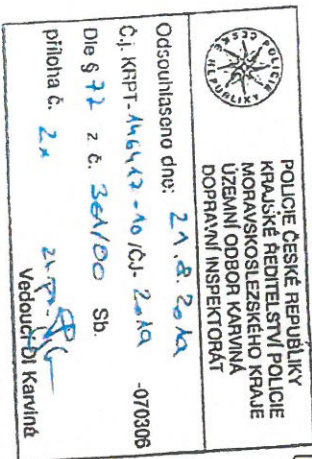 POLICIE ČESKÉ REPUBLIKY
KRAJSKÉ ŘEDITELSTVÍ POLICIE
MORAVSKOSLEZSKÉHO KRAJE
ÚZEMNÍ ODBOR KARVINÁ
DOPRAVNÍ INSPEKTORÁT
Odsouhlaseno dne: 21.8.2019
Č.j. KRPT-146417-10/ČJ-2019-070306
Dle § 77 z č. 361/00 Sb.
příloha č. 2x
Vedoucí DI Karviná